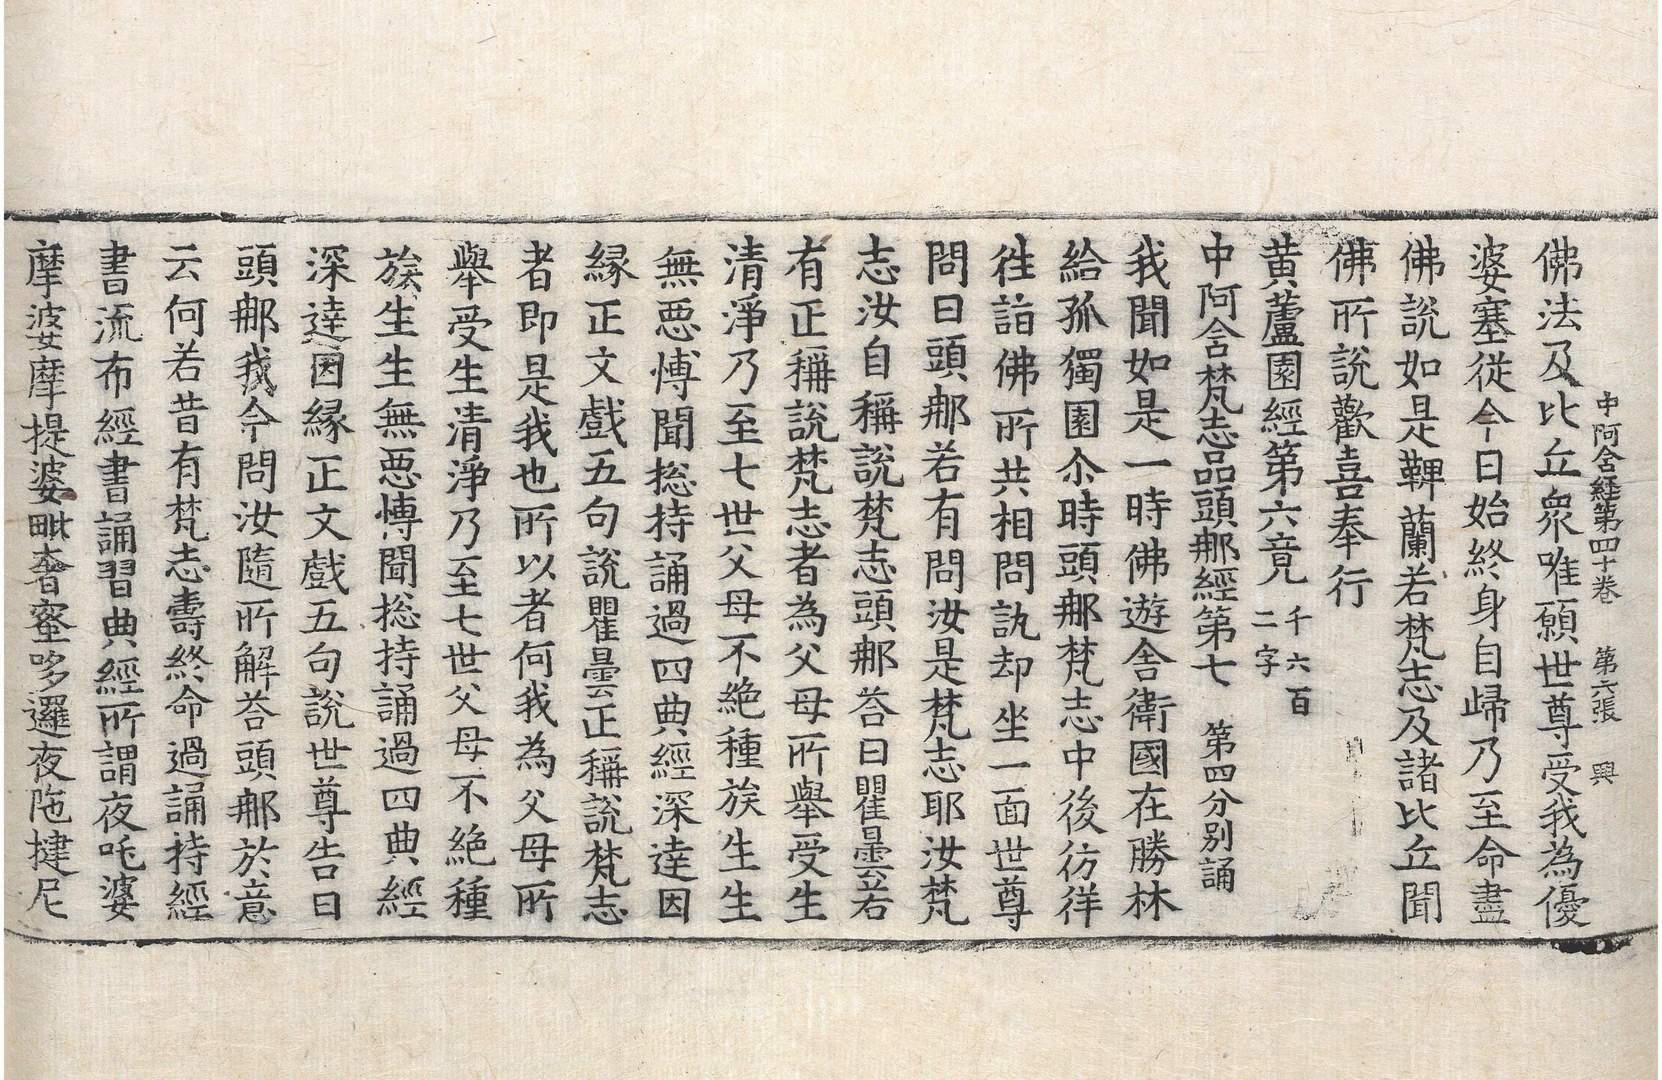 中阿含経第四十卷 第六張 興
佛法及比丘衆唯願世尊受我為優
婆塞從今日始終身自歸乃至命盡
佛說如是鞞蘭若梵志及諸比丘聞
佛所說歡喜奉行
黄蘆園經第六竟 千六百二字
中阿含梵志品頭那經第七 第四分別誦
我聞如是一時佛遊舍衛國在勝林
給孤獨園尒時頭那梵志中後彷徉
徃詣佛所共相問訊却坐一面世尊
問曰頭那若有問汝是梵志耶汝梵
志汝自稱說梵志頭那荅曰瞿曇若
有正稱說梵志者為父母所舉受生
清淨乃至七世父母不絶種族生生
無惡博聞惣持誦過四典經深達因
縁正文戲五句說瞿曇正稱說梵志
者即是我也所以者何我為父母所
舉受生清淨乃至七世父母不絶種
族生生無惡博聞惣持誦過四典經
深達因縁正文戲五句說世尊告曰
頭那我今問汝隨所解荅頭那於意
云何若昔有梵志壽終命過誦持經
書流布經書誦習典經所謂夜吒婆
摩婆摩提婆毗奢蜜哆邏夜陁揵尼